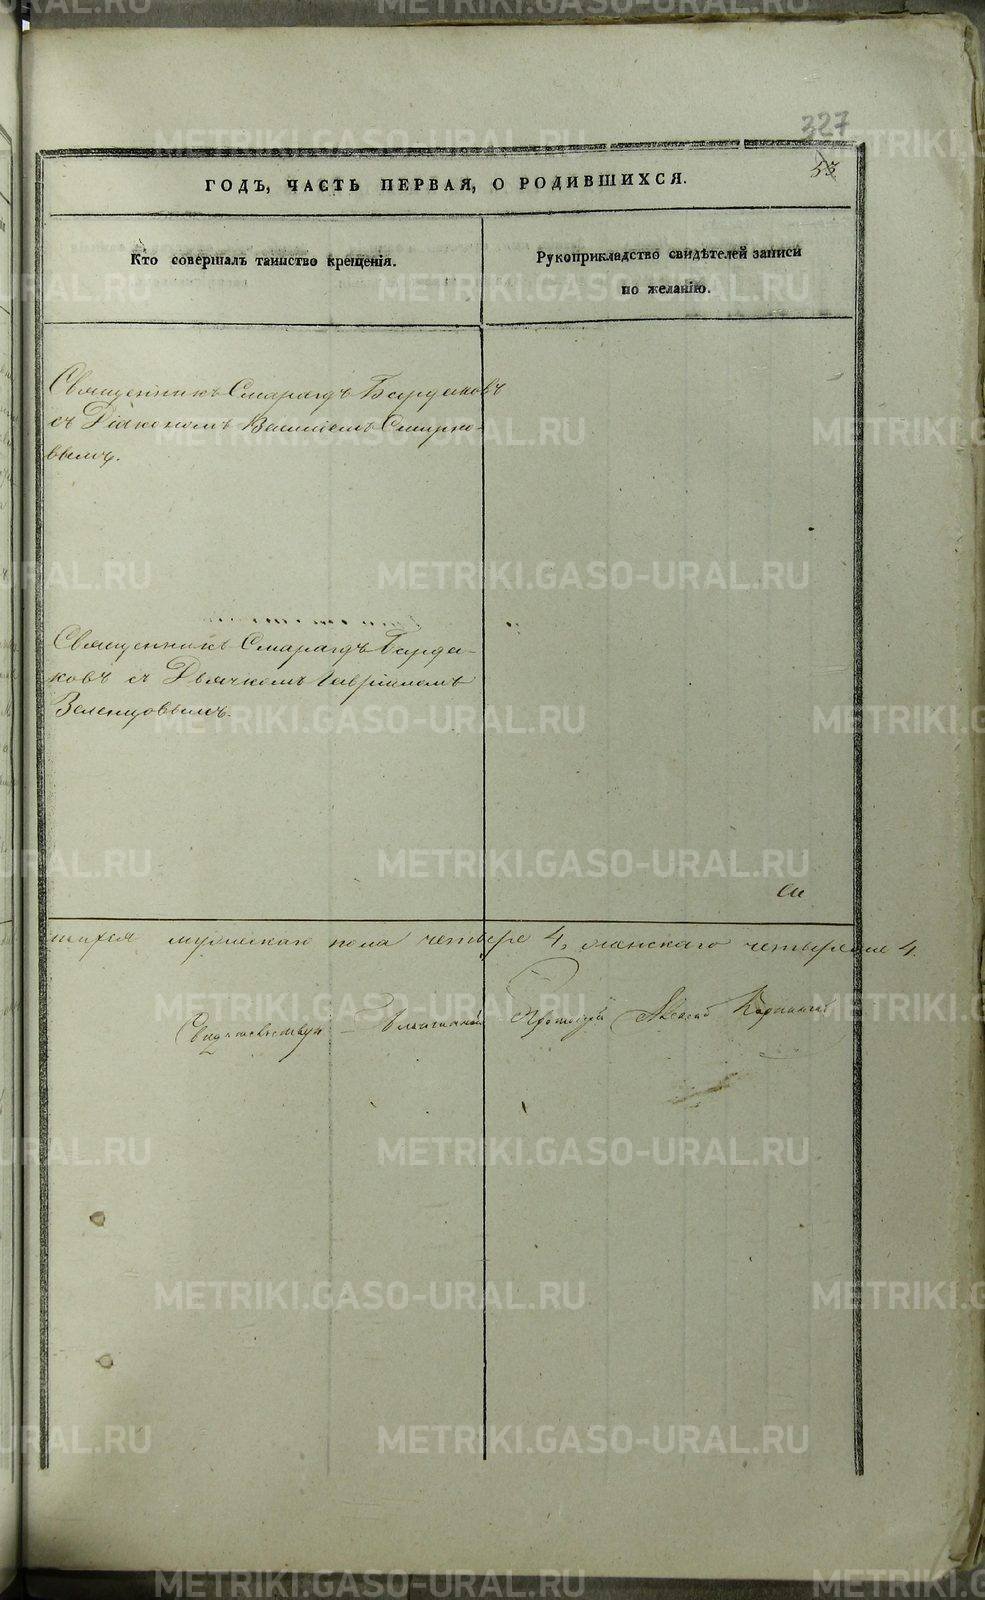 327
53
ГОДЪ, ЧАСТЬ ПЕРВАЯ, О РОДИВШИХСЯ.
Кто совершалъ таинство крещенія.
Рукоприкладство свидѣтелей записи
по желанію.
Священникъ Смарагдъ Бардаковъ
съ Діакономъ Василіемъ Смирно-
вымъ.
Священникъ Смарагдъ Барда-
ковъ съ Дьячкомъ Гавріиломъ
Зеленцовымъ.
шихся мужескаго пола четыре 4, женскаго четыре 4.
Благочинный Протоіерей
METRIKI.GASO-URAL.RU